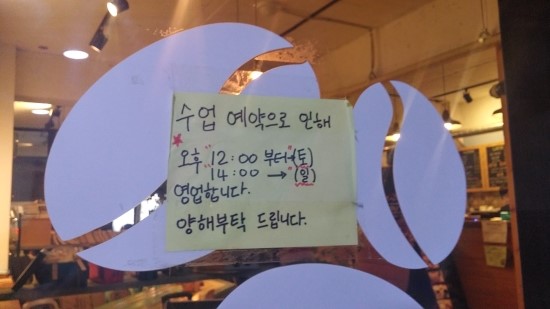 수업 예약으로 인해
오후 "12:00 부터 (토)
"14:00 → "(일)
영업합니다.
양해부탁 드립니다.